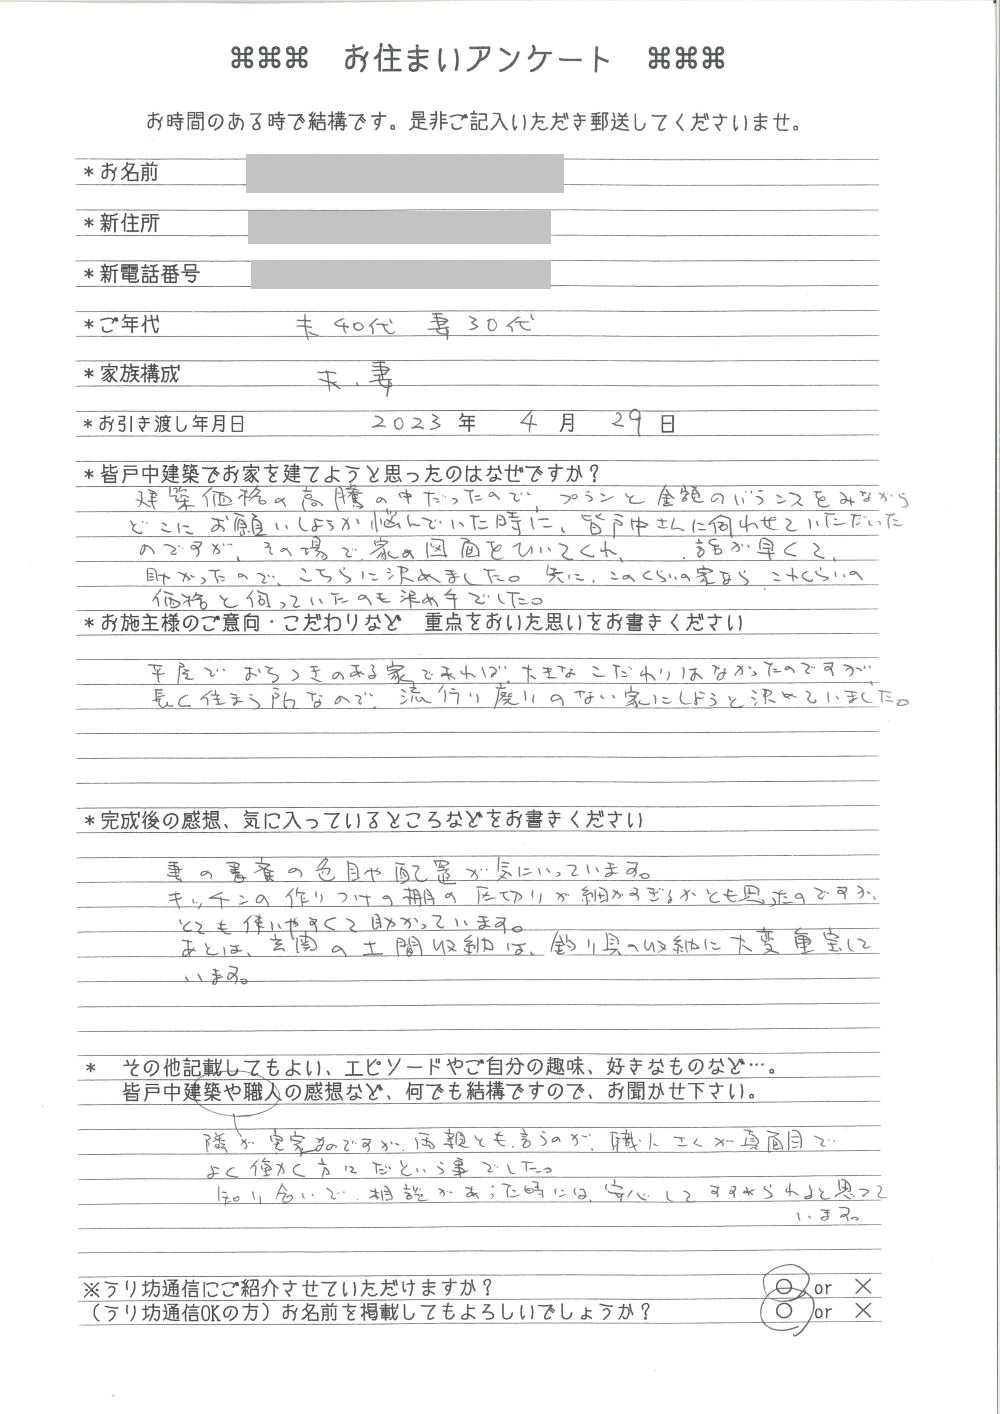 ⌘⌘⌘ お住まいアンケート ⌘⌘⌘
お時間のある時で結構です。是非ご記入いただき郵送してくださいませ。
*お名前
*新住所
*新電話番号
*ご年代 夫40代 妻30代
*家族構成 夫、妻
*お引き渡し年月日 2023 年 4 月 29 日
*皆戸中建築でお家を建てようと思ったのはなぜですか？
建築価格の高騰の中だったので、プランと金額のバランスをみながら
どこにお願いしようか悩んでいた時に、皆戸中さんに伺わせていただいた
のですが、その場で、家の図面をひいてくれ、話が早くて、
助かったので、こちらに決めました。先に、このくらいの家なら これくらいの
価格と伺っていたのも決め手でした。
*お施主様のご意向・こだわりなど 重点をおいた思いをお書きください
平屋で おちつきのある家であれば、大きなこだわりはなかったのですが、
長く住まう所なので、流行り廃りのない家にしようと決めていました。
*完成後の感想、気に入っているところなどをお書きください
妻の書斎の色目や配置が気にいっています。
キッチンの作りつけの棚の区切りが細かすぎるかとも思ったのですが、
とても使いやすくて助かっています。
あとは、玄関の土間収納は、釣り具の収納に大変重宝して
います。
* その他記載してもよい、エピソードやご自分の趣味、好きなものなど…。
皆戸中建築や職人の感想など、何でも結構ですので、お聞かせ下さい。
隣が実家なのですが、両親とも言うのが、職人さんが真面目で
よく働く方々だという事でした。
知り合いで、相談があった時には、安心してすすめられると思って
います。
※うり坊通信にご紹介させていただけますか？ ○ or ×
（うり坊通信OKの方）お名前を掲載してもよろしいでしょうか？ ○ or ×